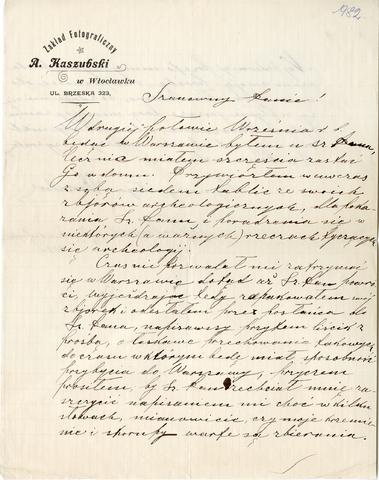 982
Zakład Fotograficzny
A. Kaszubski
w Włocławku
UL. BRZESKA 323,
Szanowny Panie!
W drugiej połowie Września r. b.
będąc w Warszawie byłem u Sz. Pana,
lecz nie miałem szczęścia zastać
Go w domu. Przywiozłem wówczas
z sobą siedem tablic ze swoich
zbiorów archeologicznych, dla poka-
zania Sz. Panu i poradzenia się w
niektórych (a ważnych) rzeczach tyczących
się archeologij.
Czas nie pozwalał mi zatrzymać
się w Warszawie dotąd aż Sz. Pan powró-
ci, wyjeżdżając tedy, zapakowałem mój
zbiorek i odesłałem przez posłańca do
Sz. Pana, napisawszy przytem liścik z
prośbą, o łaskawe przechowanie takowego,
do czasu w którym będę miał sposobność
przybycia do Warszawy, przyczem
prosiłem, by Sz. Pan zechciał mnie za-
szczycić napisaniem mi choć w kilku
słowach, mianowicie, czy moje krzemie-
nie i skorupy warte są zbierania.